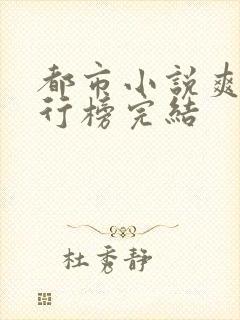 都市小説爽
行榜完結
杜秀静